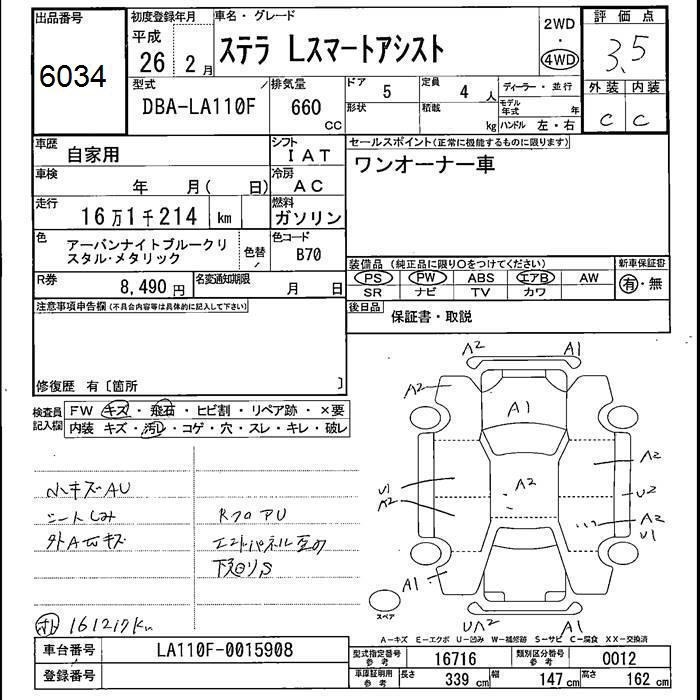 出品番号
6034
初度登録年月
平成
26 2月
車名・グレード
ステラ Lスマートアシスト
2WD
・
4WD
評価点
3.5
外装 内装
C C
型式
DBA-LA110F
排気量
660
CC
ドア
5
形状
定員
4人
積載
kg
ディーラー・並行
モデル年式 年
ハンドル 左・右
車歴
自家用
シフト
IAT
車検
年 月( 日)
冷房
AC
走行
16万1千214 km
燃料
ガソリン
色
アーバンナイトブルークリ
スタル・メタリック
色替
色コード
B70
R券
8,490円
名変通知期限
月 日
セールスポイント(正常に機能するものに限ります)
ワンオーナー車
装備品 (純正品に限り○をつけてください)
PS PW ABS エアB AW
SR ナビ TV カワ
新車保証書
有・無
後日品
保証書・取説
注意事項申告欄(不具合内容等は具体的に記入して下さい)
修復歴 有〔箇所 〕
検査員
記入欄
FW キズ・飛石・ヒビ割・リペア跡・×要
内装 キズ・汚レ・コゲ・穴・スレ・キレ・破レ
小キズAU
シートしみ
外AWキズ
RフロアU
下廻りS
161217Km
A2 A1
A2
A1
A2
U1
A2
A2
U2
A2
U1
A1
UA2 A1
スペア
A-キズ E-エクボ U-凹み W-補修跡 S-サビ C-腐食 XX-交換済
車台番号
LA110F-0015908
登録番号
型式指定番号
参考
16716
類別区分番号
参考
0012
車庫証明用
参考
長さ 339cm
幅 147cm
高さ 162cm